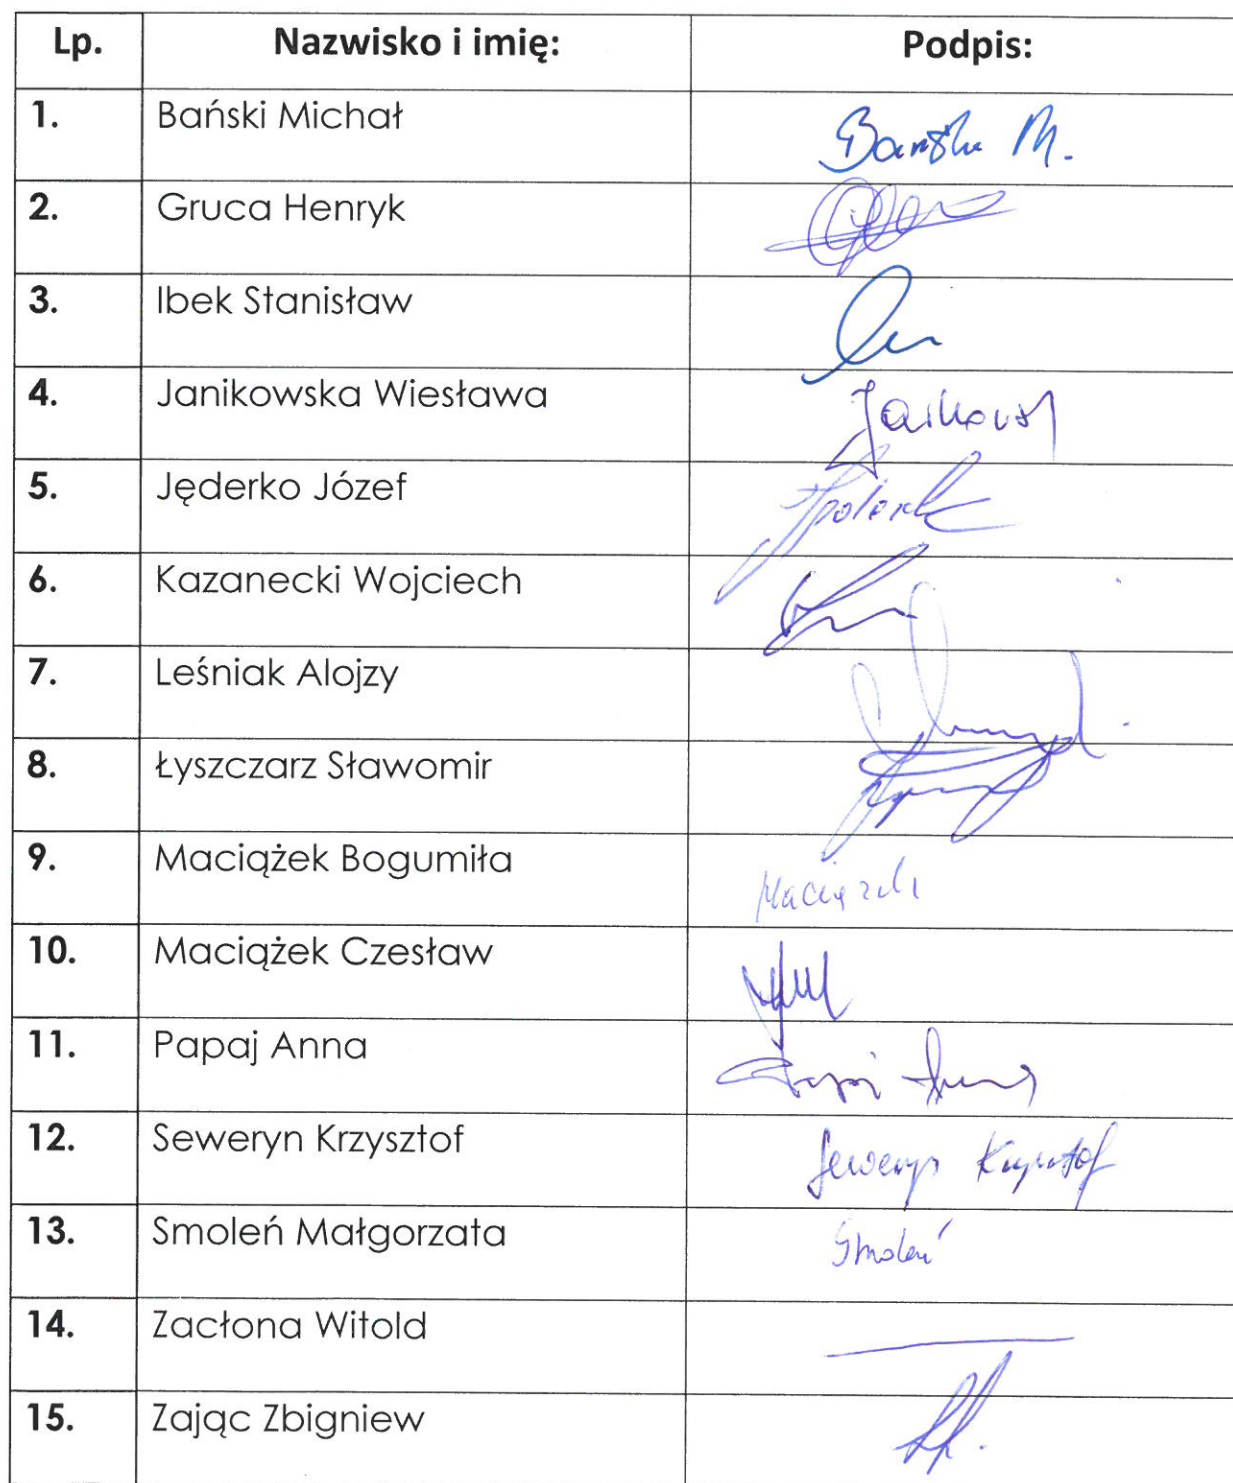 Lp. Nazwisko i imię: Podpis:
1. Bański Michał Bański M.
2. Gruca Henryk
3. Ibek Stanisław
4. Janikowska Wiesława
5. Jęderko Józef
6. Kazanecki Wojciech
7. Leśniak Alojzy
8. Łyszczarz Sławomir
9. Maciążek Bogumiła Maciążek
10. Maciążek Czesław
11. Papaj Anna Papaj Anna
12. Seweryn Krzysztof Seweryn Krzysztof
13. Smoleń Małgorzata Smoleń
14. Zacłona Witold
15. Zając Zbigniew